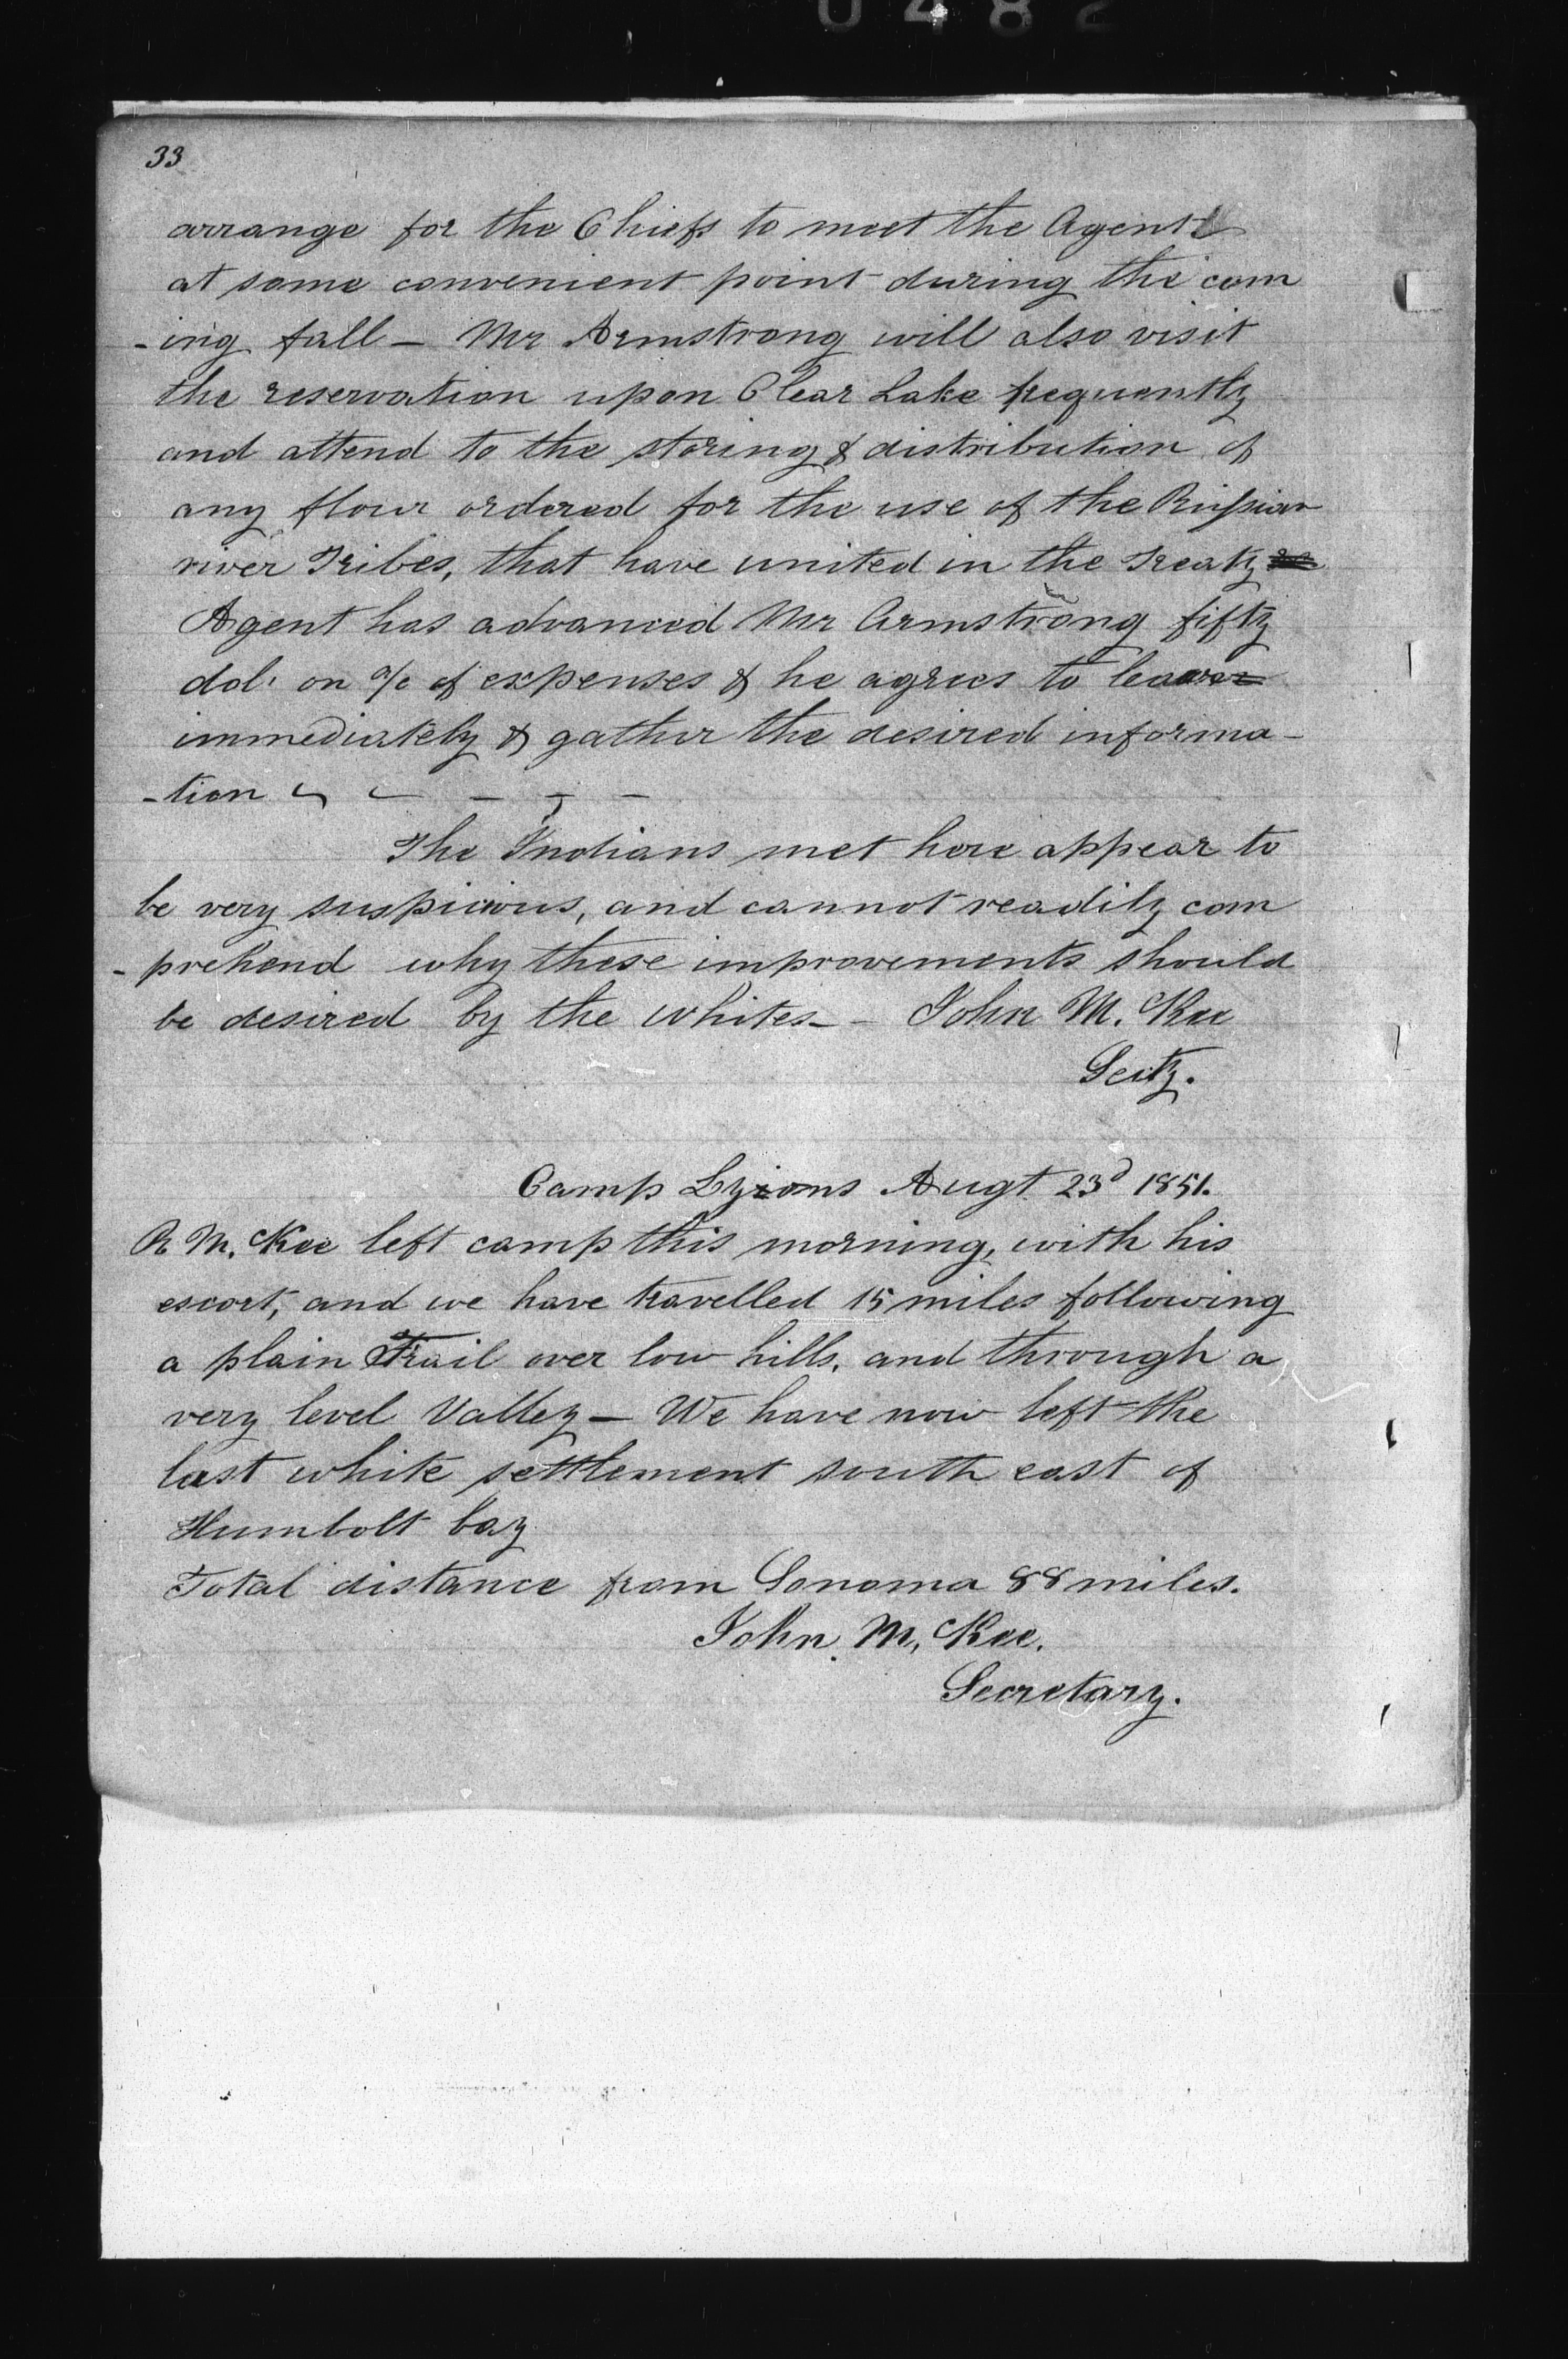 0482
33
arrange for the Chiefs to meet the Agent
at some convenient point during the com
-ing fall - Mr Armstrong will also visit
the reservation upon Clear Lake frequently
and attend to the storing & distribution of
any flour ordered for the use of the Russian
river Tribes, that have united in the Treaty
Agent has advanced Mr Armstrong fifty
dol. on a/c of expenses & he agrees to leave
immediately & gather the desired informa-
-tion
The Indians met here appear to
be very suspicious, and cannot readily com
-prehend why these improvements should
be desired by the whites - - John M. Kee
Secty.
Camp Lyons Augt 23d 1851.
R M. Kee left camp this morning, with his
escort, and we have travelled 15 miles following
a plain Trail over low hills, and through a
very level Valley - We have now left the
last white settlement south east of
Humbolt bay
Total distance from Sonoma 88 miles.
John M. Kee.
Secretary.